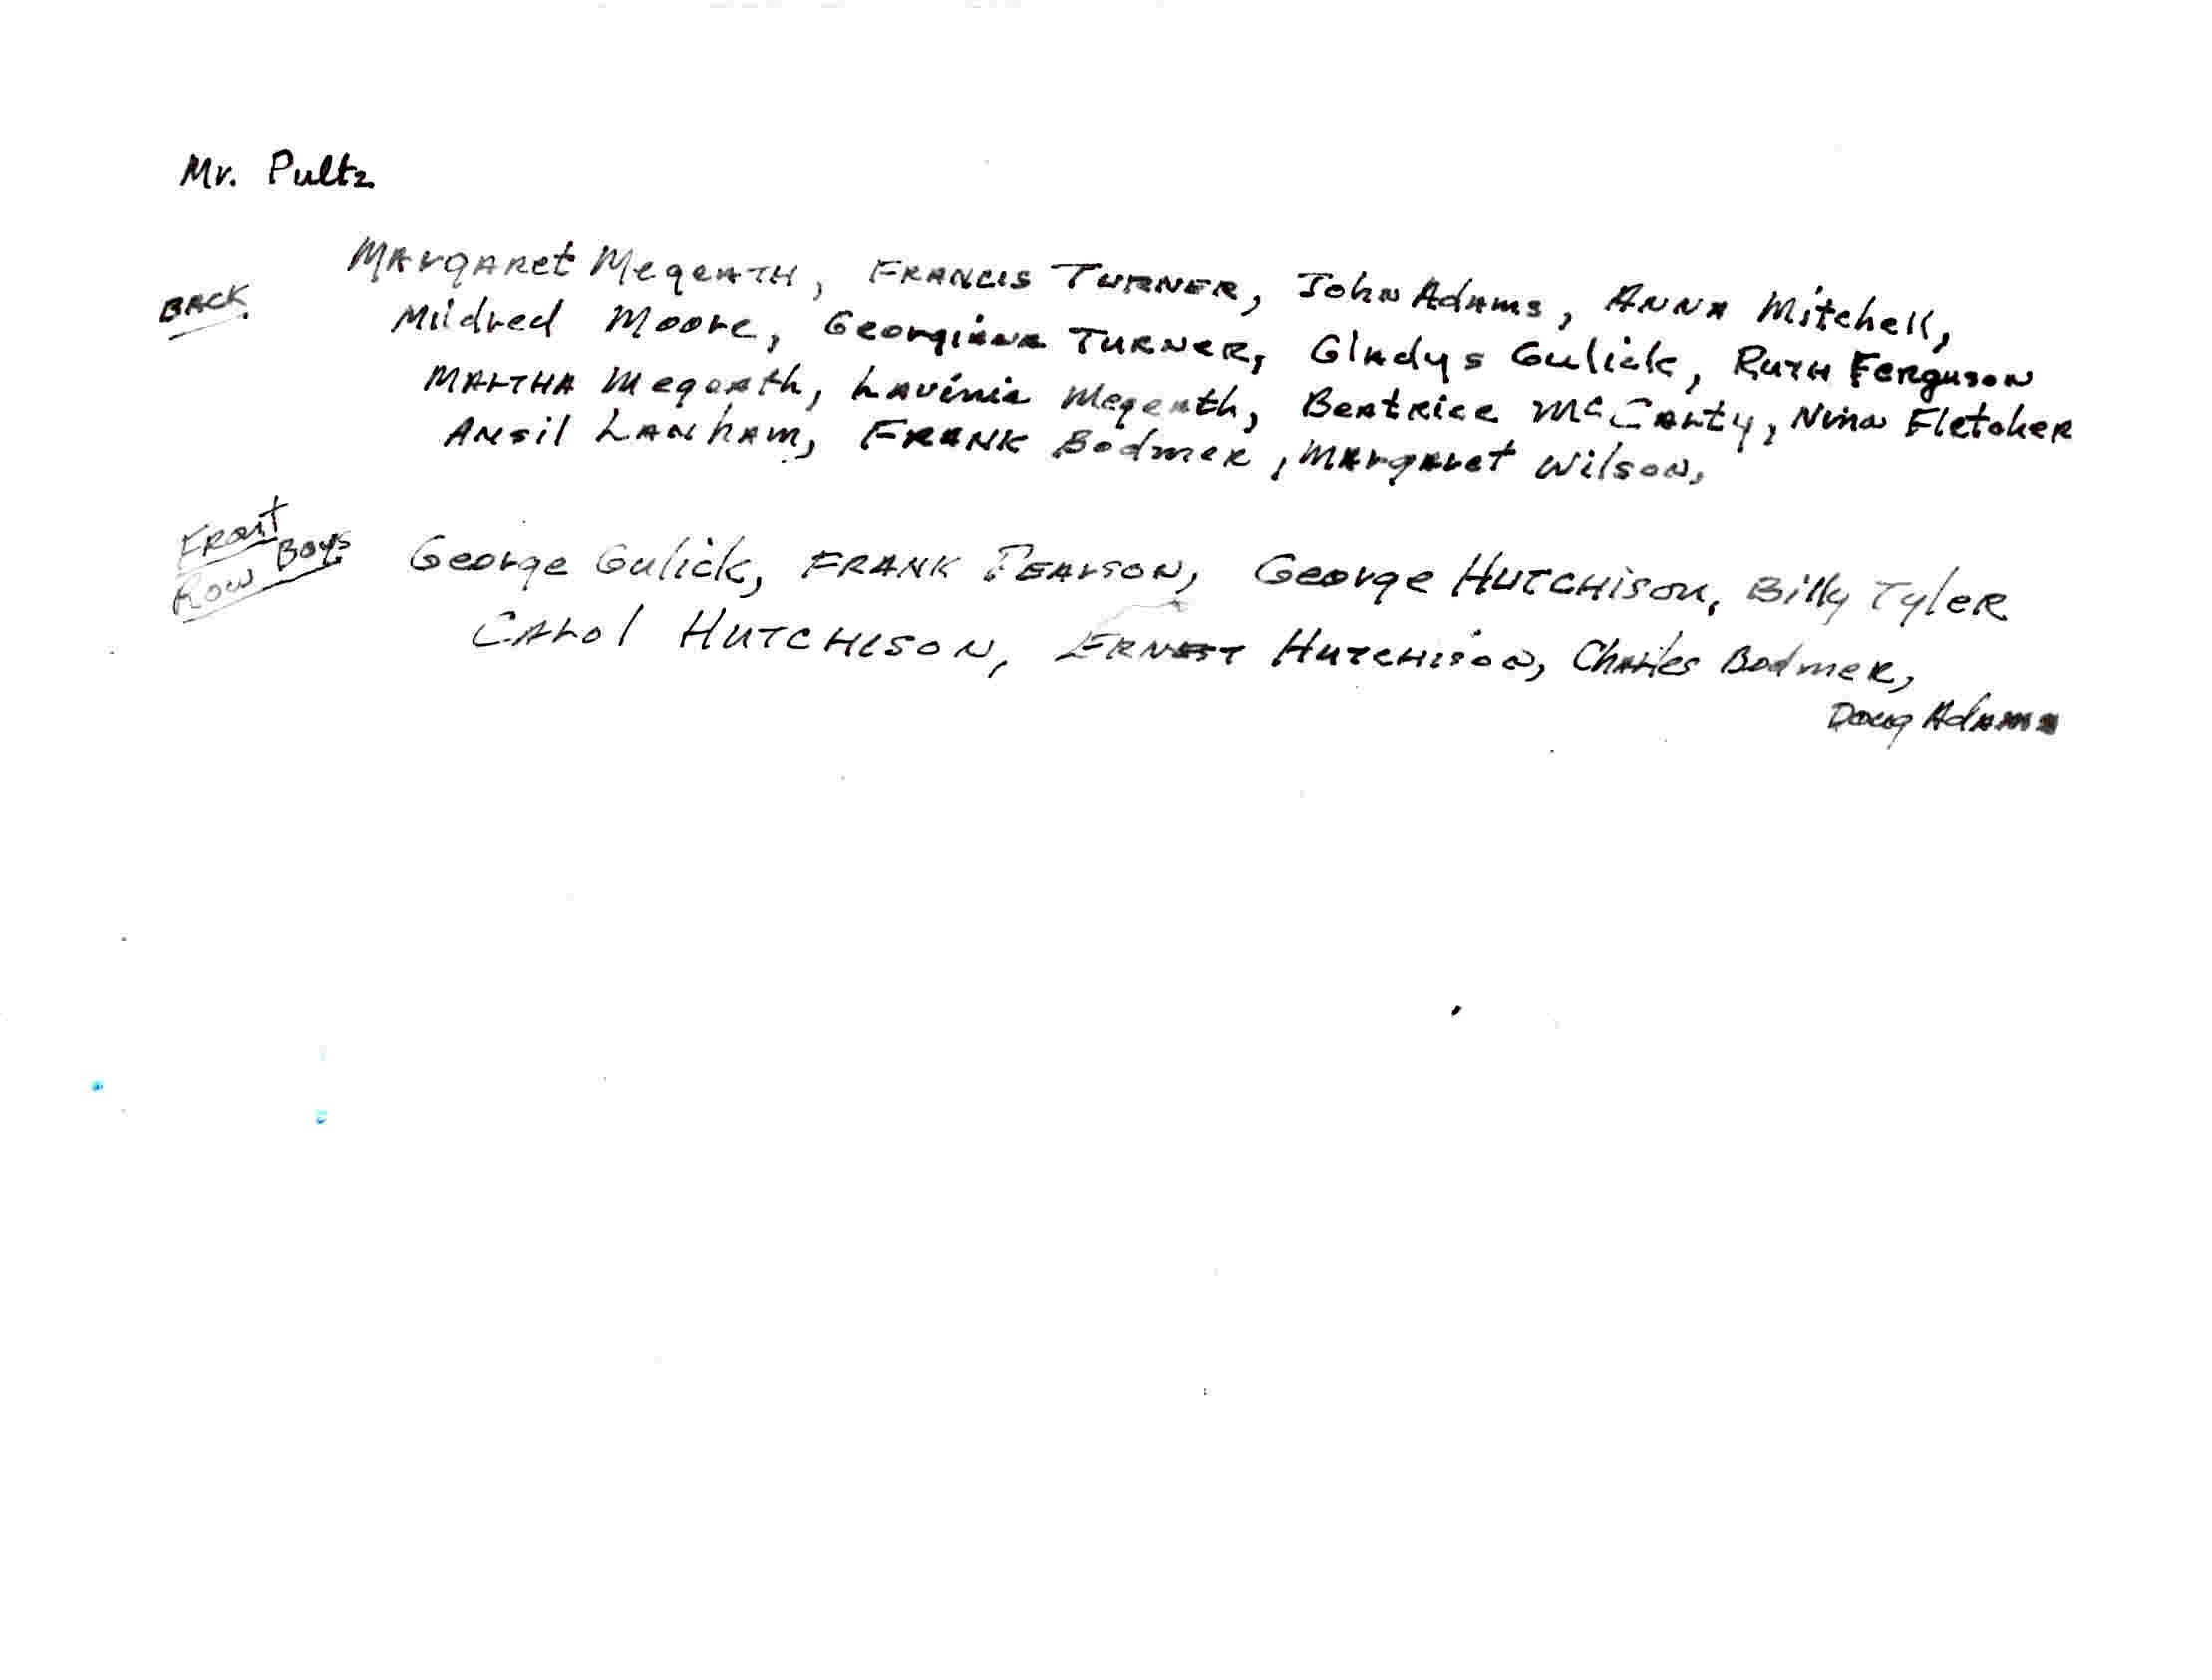 Mr. Pultz
Margaret Megeath, Francis Turner, John Adams, Anna Mitchell,
BACK Mildred Moore, Georgiana Turner, Gladys Gulick, Ruth Ferguson
Martha Megeath, Lavinia Megeath, Beatrice McCarty, Nina Fletcher
Ansil Lanham, Frank Bodmer, Margaret Wilson,
Front Row Boys George Gulick, Frank Pearson, George Hutchison, Billy Tyler
Carol Hutchison, Ernest Hutchison, Charles Bodmer,
Doug Adams